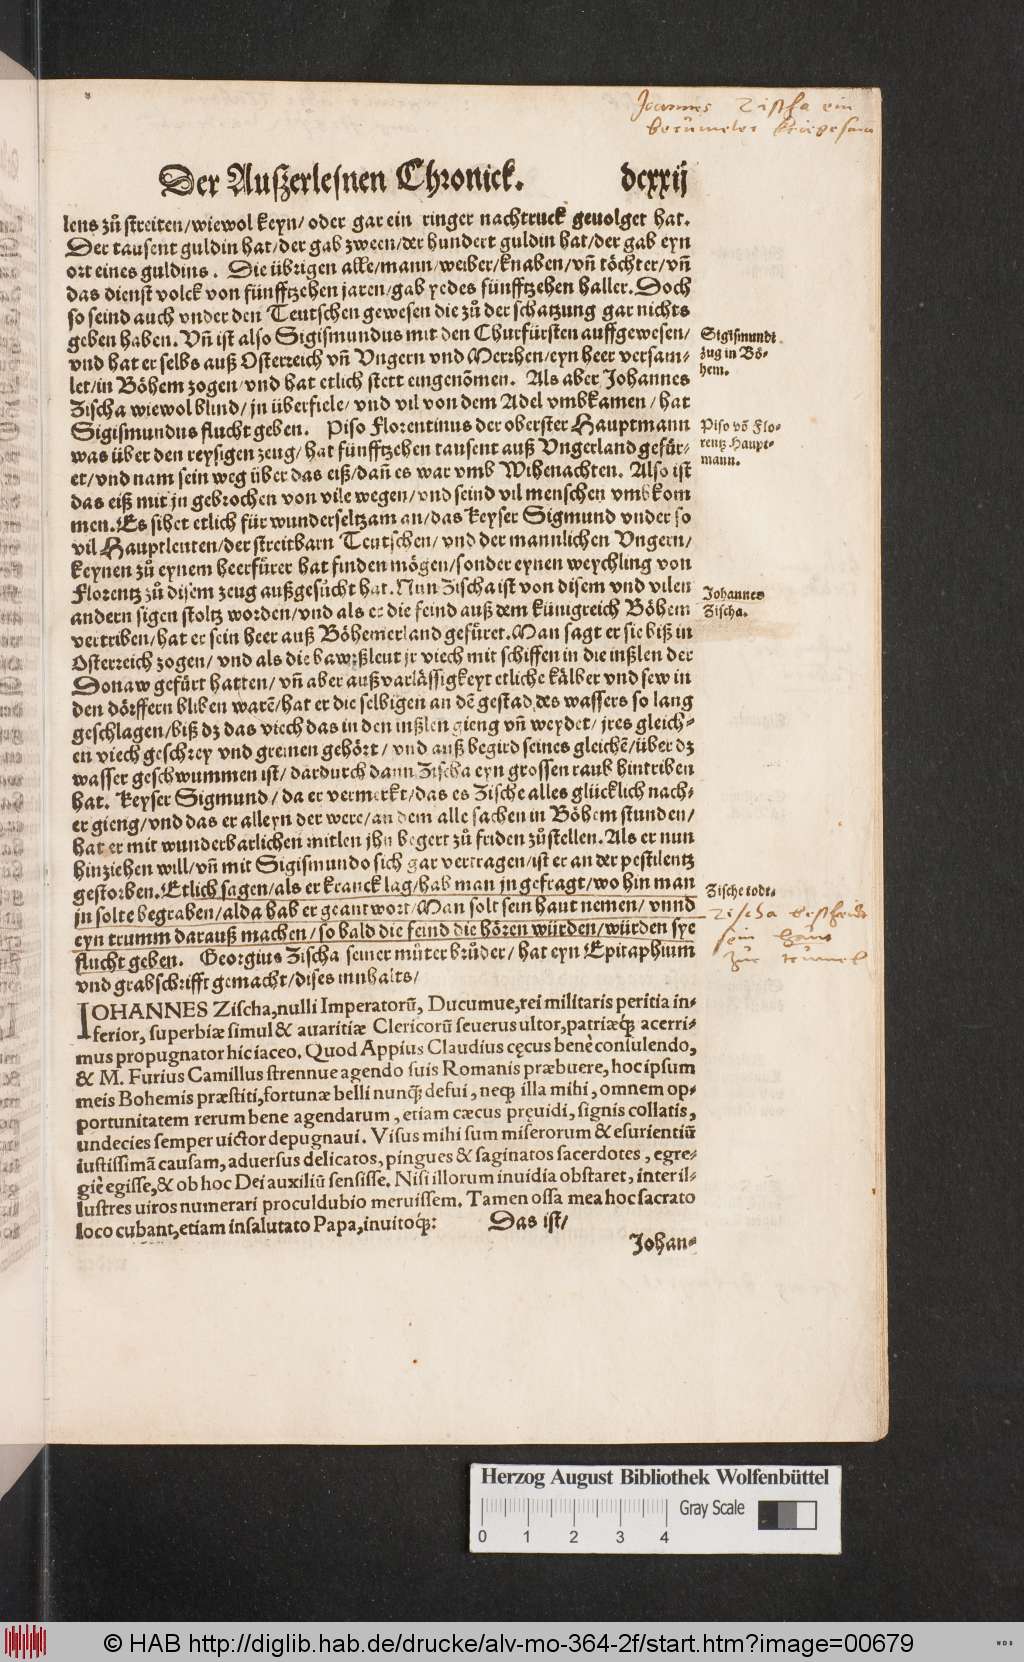 Joannes Zischa ein
berümeter kriegsman
Der Auszerlesnen Chronick.
dcxxij
lens zů streiten/wiewol keyn/oder gar ein ringer nachtruck geuolget hat.
Der tausent guldin hat/der gab zween/der hundert guldin hat/der gab eyn
ort eines guldins. Die übrigen alle/mann/weiber/knaben/vñ töchter/vñ
das dienst volck von fünfftzehen jaren/gab yedes fünfftzehen haller. Doch
so seind auch vnder den Teutschen gewesen die zů der schatzung gar nichts
geben haben. Vñ ist also Sigismundus mit den Churfürsten auffgewesen/
vnd hat er selbs auß Osterreich vñ Vngern vnd Merrhen/eyn heer versam⸗
let/in Böhem zogen/vnd hat etlich stett eingenõmen. Als aber Johannes
Zischa wiewol blind/jn überfiele/vnd vil von dem Adel vmbkamen/hat
Sigismundus flucht geben. Piso Florentinus der oberster Hauptmann
was über den reysigen zeug/hat fünfftzehen tausent auß Vngerland gefůr⸗
et/vnd nam sein weg über das eiß/dañ es war vmb Wihenachten. Also ist
das eiß mit jn gebrochen von vile wegen/vnd seind vil menschen vmbkom
men. Es sihet etlich für wunderseltzam an/das Keyser Sigmund vnder so
vil Hauptleuten/der streitbarn Teutschen/vnd der mannlichen Vngern/
keynen zů eynem heerfůrer hat finden mögen/sonder eynen weychling von
Florentz zů disem zeug außgesůcht hat. Nun Zischa ist von disem vnd vilen
andern sigen stoltz worden/vnd als er die feind auß dem künigreich Böhem
vertriben/hat er sein heer auß Böhemerland gefůret. Man sagt er sie biß in
Osterreich zogen/vnd als die bawrßleut jr viech mit schiffen in die inßlen der
Donaw gefůrt hatten/vñ aber auß varlässigkeyt etliche kälber vnd sew in
den dörffern bliben warẽ/hat er die selbigen an dẽ gestad des wassers so lang
geschlagen/biß dz das viech das in den inßlen gieng vñ weydet/jres gleich⸗
en viech geschrey vnd greinen gehört/vnd auß begird seines gleichẽ/über dz
wasser geschwummen ist/dardurch dann Zischa eyn grossen raub hintriben
hat. Keyser Sigmund/da er vermerckt/das es Zische alles glücklich nach⸗
er gieng/vnd das er alleyn der were/an dem alle sachen in Böhem stunden/
hat er mit wunderbarlichen mitlen jhn begert zů friden zůstellen. Als er nun
hinziehen will/vñ mit Sigismundo sich gar vertragen/ist er an der pestilentz
gestorben. Etlich sagen/als er kranck lag/hab man jn gefragt/wo hin man
jn solte begraben/alda hab er geantwort/Man solt sein haut nemen/vnnd
eyn trumm darauß machen/so bald die feind die hören würden/würden sye
flucht geben. Georgius Zischa seiner můter brůder/hat eyn Epitaphium
vnd grabschrifft gemacht/dises innhalts/
IOHANNES Zischa, nulli Imperatorũ, Ducumue, rei militaris peritia in⸗
ferior, superbiæ simul & auaritiæ Clericorũ seuerus ultor, patriæq́; acerri⸗
mus propugnator hic iaceo. Quod Appius Claudius cęcus benè consulendo,
& M. Furius Camillus strennue agendo suis Romanis præbuere, hoc ipsum
meis Bohemis præstiti, fortunæ belli nunq̃; defui, neq; illa mihi, omnem op⸗
portunitatem rerum bene agendarum, etiam cæcus pręuidi, signis collatis,
undecies semper uictor depugnaui. Visus mihi sum miserorum & esurientiũ
iustissimã causam, aduersus delicatos, pingues & saginatos sacerdotes, egre⸗
giè egisse, & ob hoc Dei auxiliũ sensisse. Nisi illorum inuidia obstaret, inter il⸗
lustres uiros numerari proculdubio meruissem. Tamen ossa mea hoc sacrato
loco cubant, etiam insalutato Papa, inuitoq́;: Das ist/
Johan⸗
Sigismundi
zug in Bö⸗
hem.
Piso võ Flo⸗
rentz Haupt⸗
mann.
Johannes
Zischa.
Zische todt.
Zischa bescheidt
sein haut
zur trummel
Herzog August Bibliothek Wolfenbüttel
Gray Scale
0 1 2 3 4
© HAB http://diglib.hab.de/drucke/alv-mo-364-2f/start.htm?image=00679